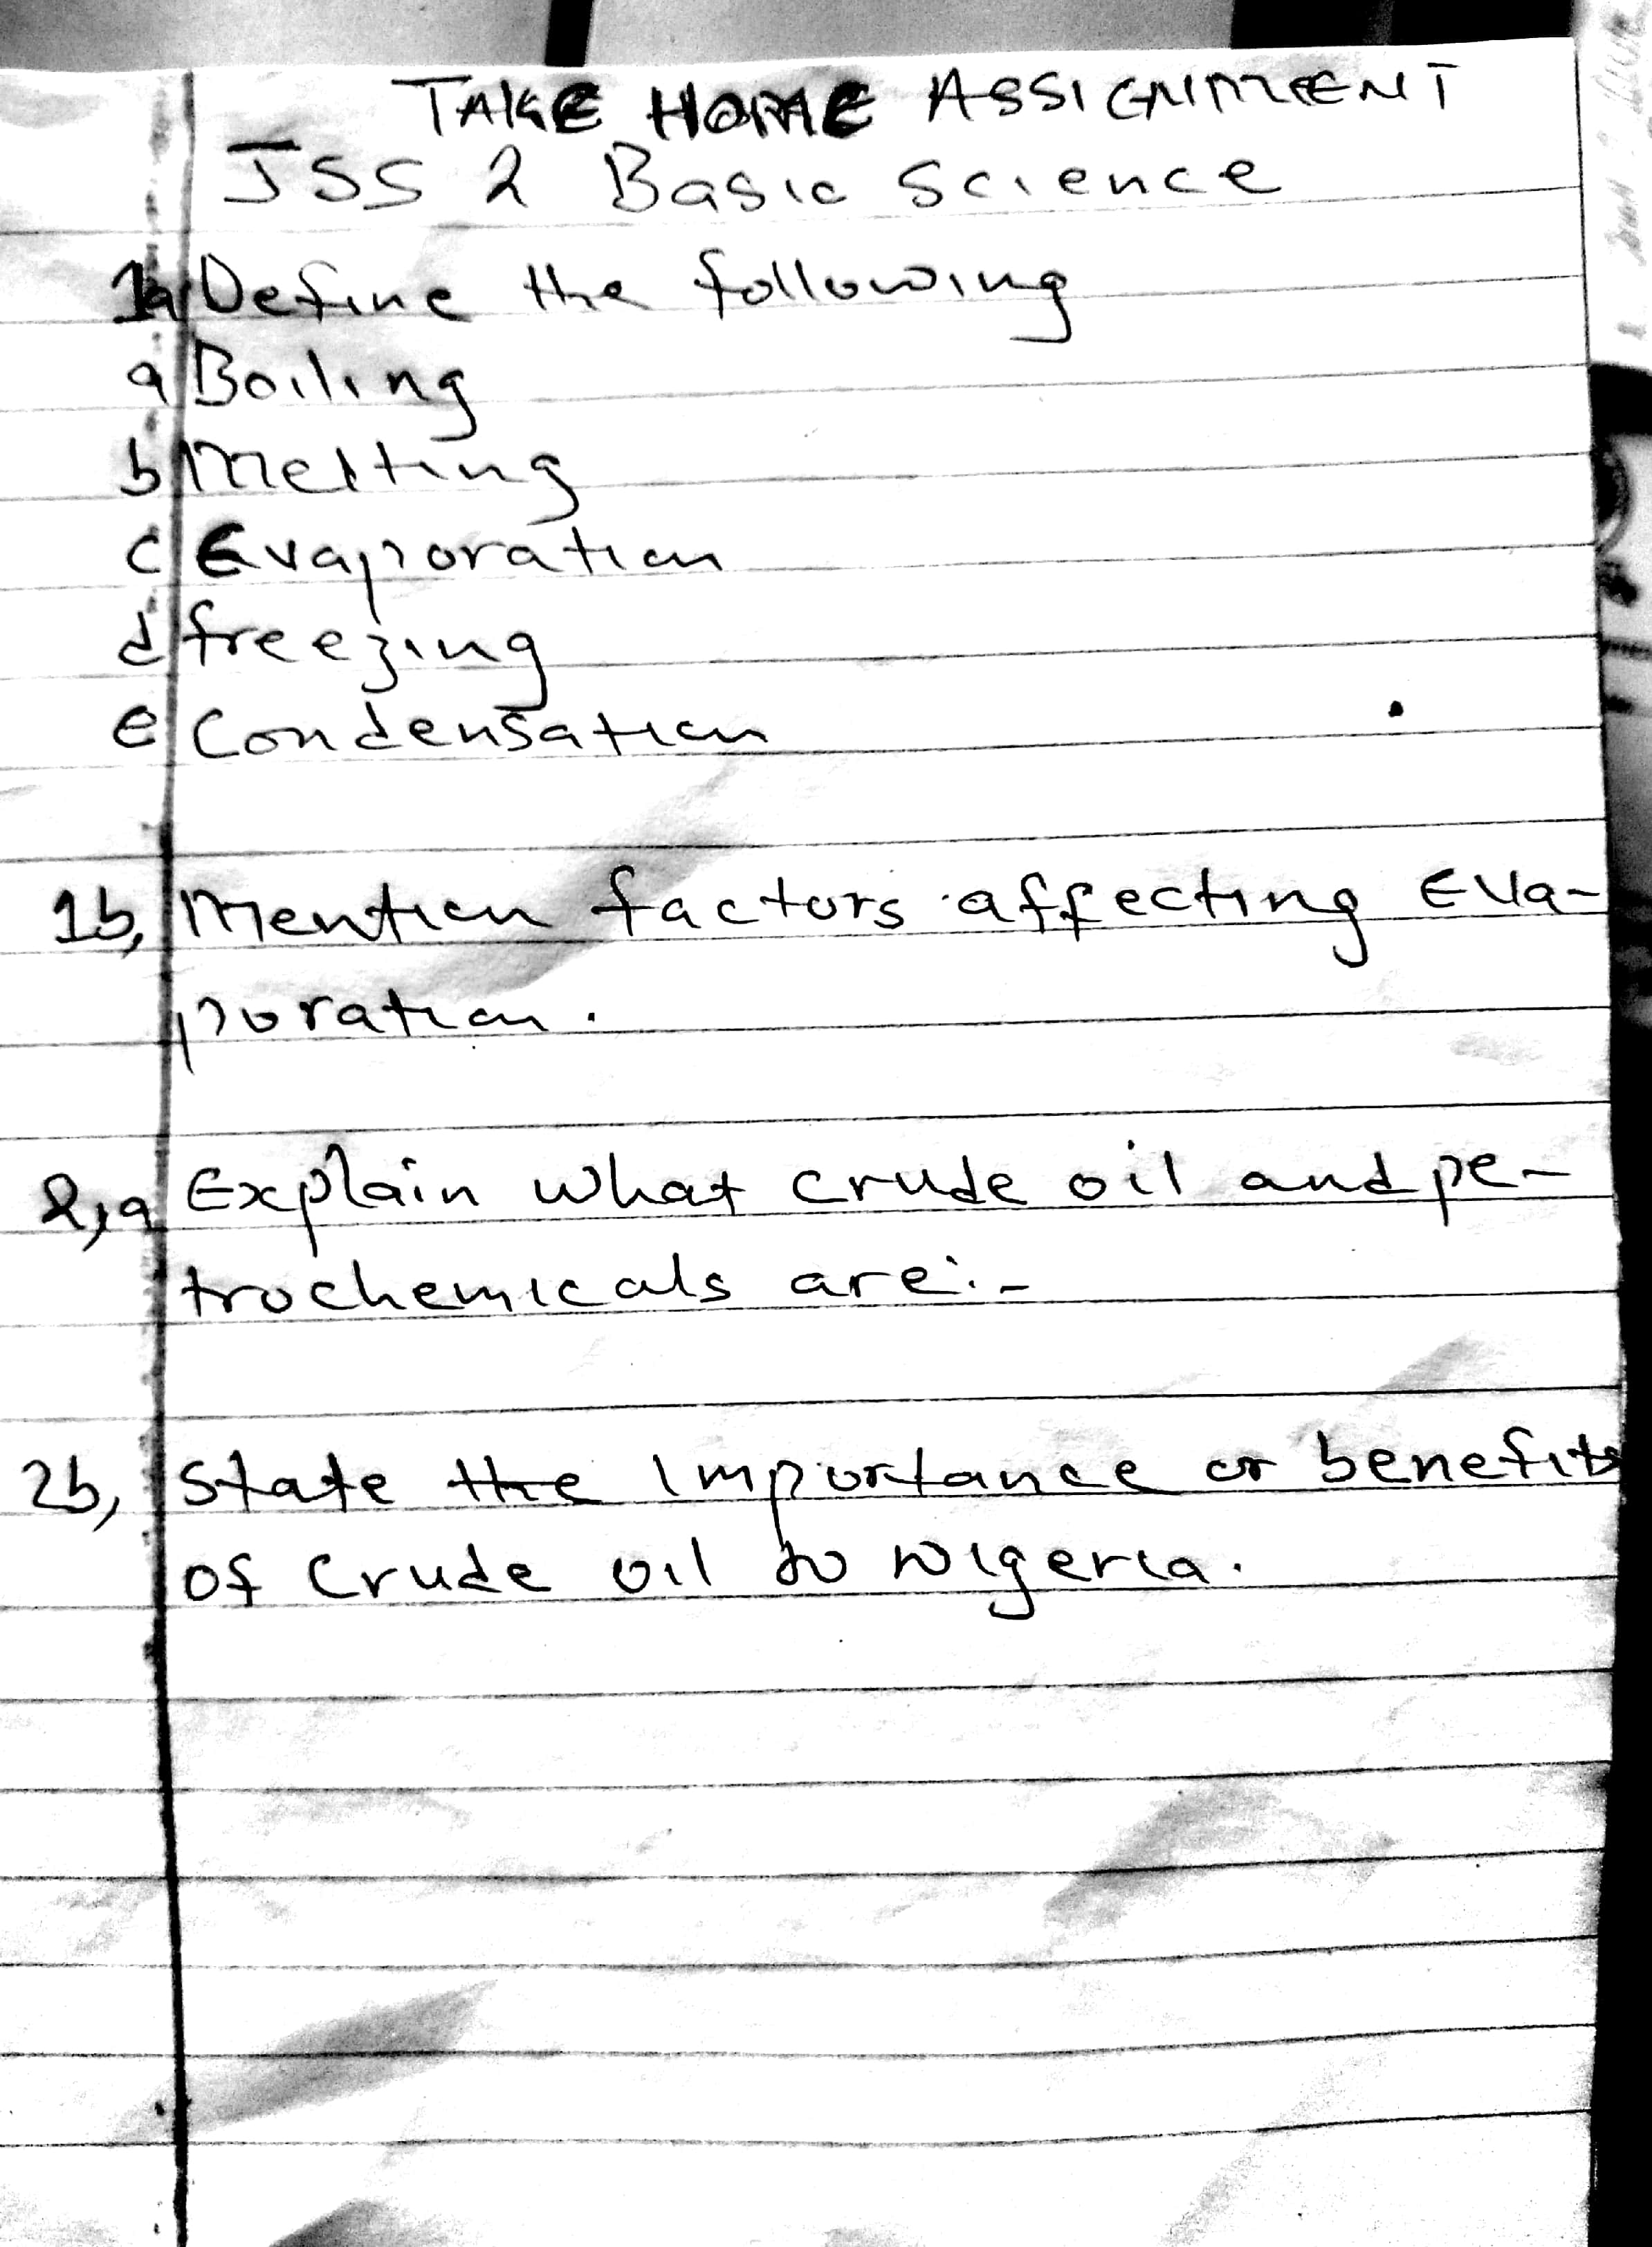 TAKE HOME ASSIGNMENT
JSS 2 Basic Science
1a Define the following
a Boiling
b Melting
c Evaporation
d freezing
e Condensation
1b, Mention factors affecting Eva-
poration.
2,a Explain what crude oil and pe-
trochemicals are:-
2b, State the Importance or benefits
of Crude oil to Nigeria.